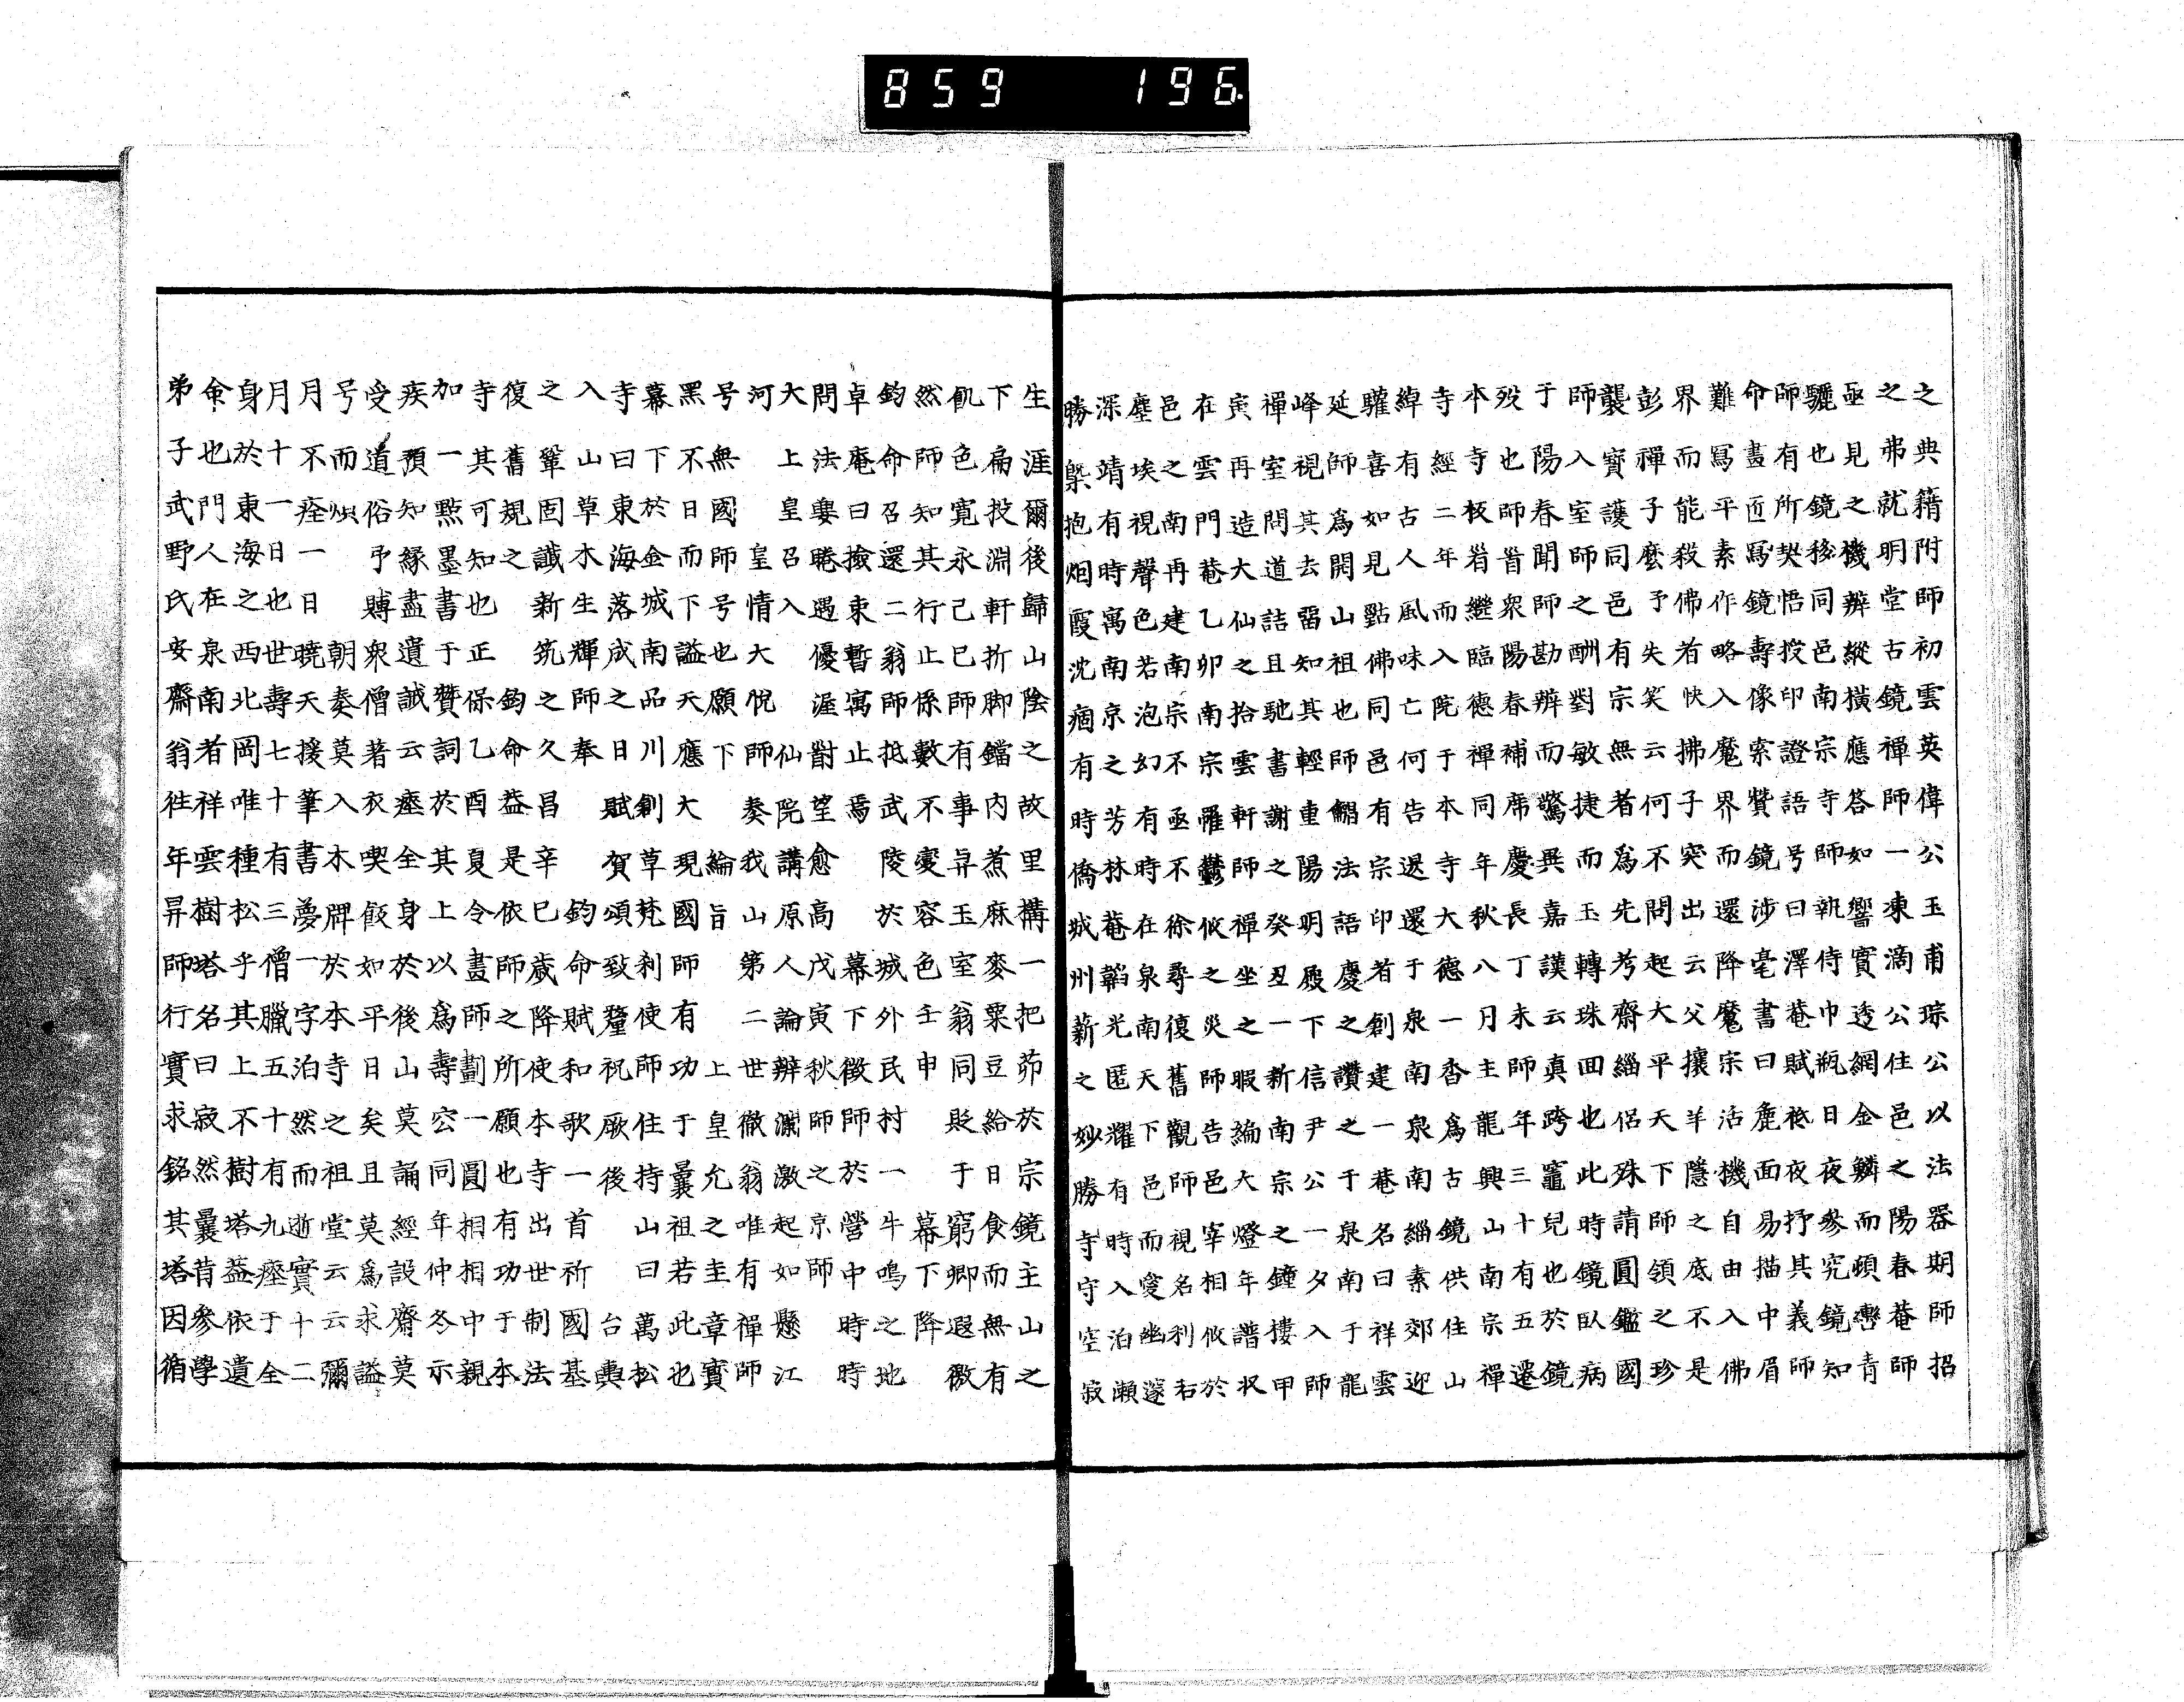 之典籍附師初雲英偉公玉甫琮公以法器期師招
之弗就明堂古鏡禪師一凍滴公住邑之陽春菴師
亟見之機辨縱橫應答如響實透網金鱗而頓轡青
驪也鏡移同邑南宗寺師執侍巾瓶日夜參究鏡知
師有所契悟授印證語号曰澤菴賦袮夜抒其義師
命畫匠冩鏡壽像索贊鏡涉毫書曰鹿面易描中眉
難冩平素作略入魔界而還降魔宗活機自由入佛
界而能殺佛者快拂子突出云父攘羊隱之底不是
彭禪子麽予失笑云何不問起大平天下師領之珍
襲寳護同邑有宗無者爲先考齋緇侶殊請圓鑑國
師入室師之酬對敏捷而玉轉珠回也此時鏡臥病
于陽春聞師勘辨而驚異嘉謨云眞跨竈兒也於鏡
殁也師首衆陽春補席慶長丁未師年三十有五還
本寺板着繼臨德禪同年秋八月主龍興山南宗禪
寺經二年而入院于本寺大德一沓爲古鏡供住山
緯有古人風味亡何告還還于泉南泉南緇素郊迎
驩喜如見點佛同邑有宗印者創建一菴名曰祥雲
延師爲開山祖也師觸法語慶之讚之于泉南于龍
峰視其去畱知其輕重陽明殿下信尹公一夕入師
禪室問道詰且馳書謝之癸丑一新南宗之鐘樓甲
寅再造大仙之拾雲軒師禪坐之暇編大燈年譜状
在雲門菴乙卯南宗罹鬱攸之災師告邑宰相攸於
邑之南再建南宗不亟不徐尋復舊觀師視名利右
塵埃視聲色若泡幻有時在泉南天下邑而幽邃
深靖有時寓南京之芳林菴韜光匿耀有時入泊瀬
勝槩抱烟霞沈痼有時僑城州薪之妙勝寺守空寂
生涯爾後歸山陰之故里構一把茆於宗鏡主山之
下扁投淵軒折脚鐺内煮麻麥粟豆給日食而無有
飢色寛永己巳師有事舁玉室翁同貶于窮卿遐徼
然師知其行止係數不憂容色壬申 幕下降
鈞命召還二翁師抵武陵於城外民村一牛鳴之地
卓庵曰撿束暫寓止焉 幕下徵師於營中時時
問法屢䁱遇優渥對望愈高戊寅秋師之京師
大 上皇召入 仙院講原人論辨瀾激起如懸江
河 皇情大悅師奏我山第二世徹翁唯有禪師
号無國師号也願下 綸旨 上皇允之圭章寳
黑不日而下謚天應大現國師有功于曩祖若此也
幕下於金城南品川創草梵刹使師住持山曰萬松
寺曰東海落成之日 賦賀頌致釐祝厥後 台輿
入山草木生輝師奉 鈞命賦和歌一首祈國基
之鞏固讖新筑之久昌辛巳歳降使本寺出世制法
復舊規之 鈞命益是依師之所願也有功于本
寺其可知也正保乙酉夏令畫師劃一圓相相中親
加一點墨書于贊詞於其上以爲壽公同年仲冬示
疾預知緣盡遺誠云瘞全身於後山莫誦經設齋莫
受道俗賻衆僧著衣喫飯如平日矣且莫爲求謚
号而煩 朝奏莫入木牌於本寺之祖堂云云彌
月不痊一日曉天援筆書夢一字泊然而逝實十二
月十一日也世壽七十有三僧臘五十有九瘞于全
身於東海之西北岡唯種松乎其上不樹塔蓋依遺
命也門人在泉南者祥雲樹塔名曰寂然曩昔參學
弟子武野氏安齋翁往年昇師行實求銘其塔因循